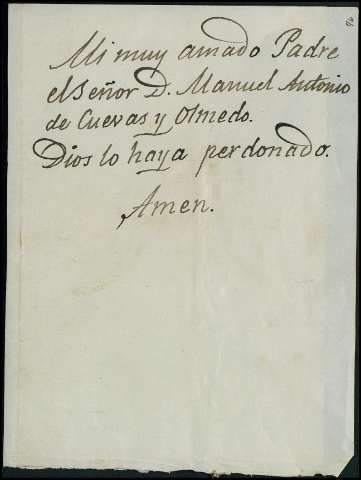 Mi muy amado Padre
el Señor D. Manuel Antonio
de Cuevas y Olmedo.
Dios lo haya perdonado.
Amen.